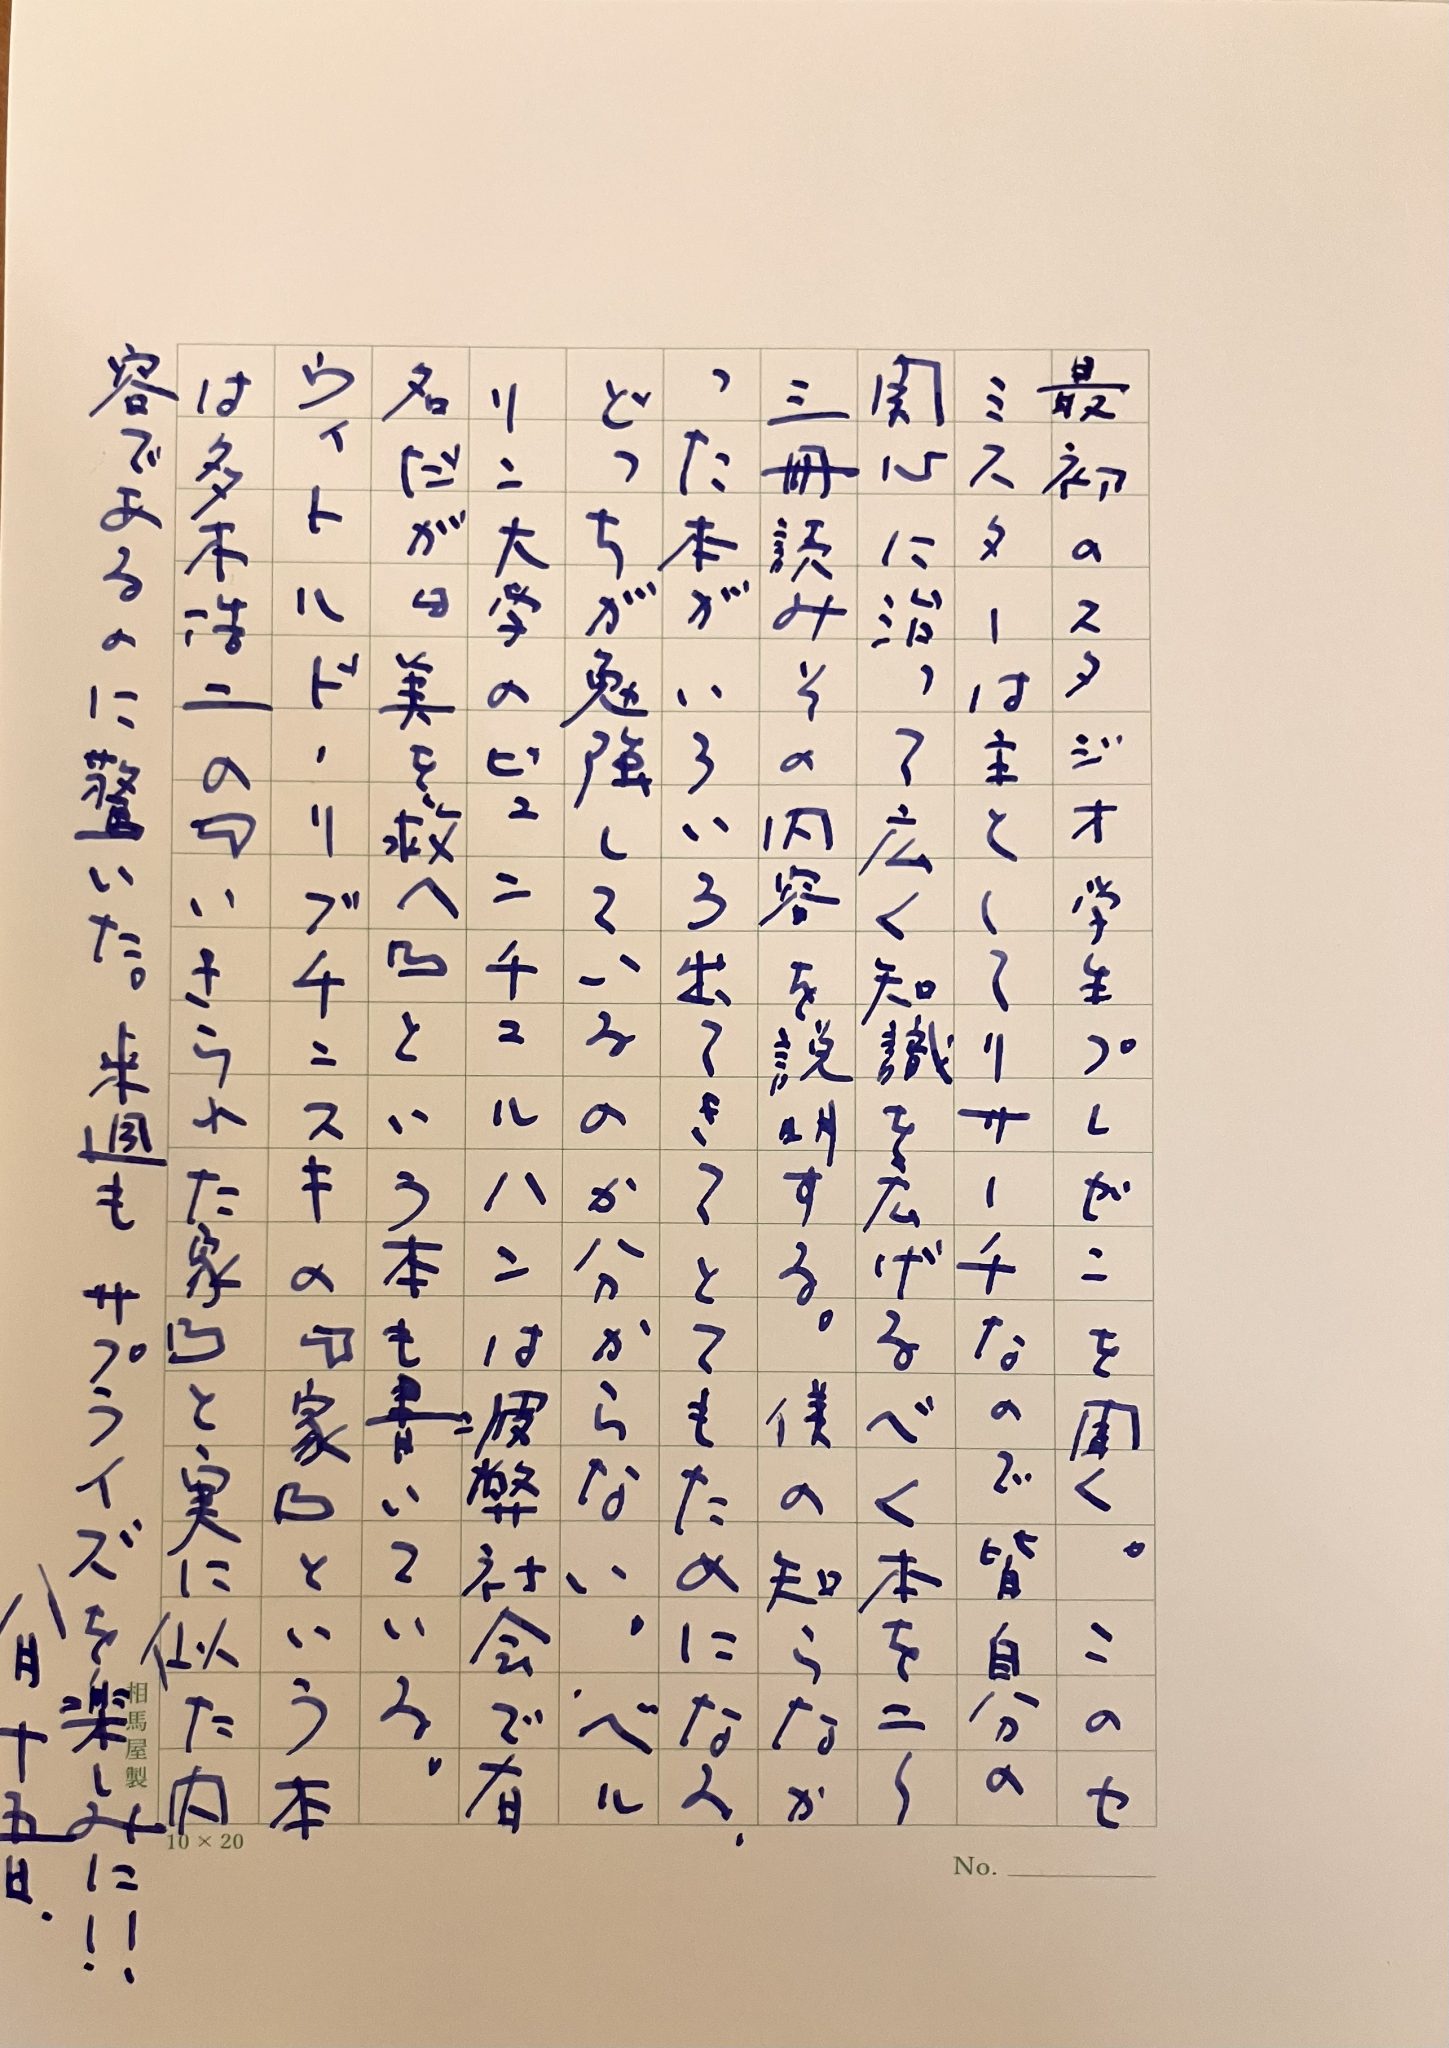 最初のスタジオ学生プレゼンを聞く。このセ
ミスターは主としてリサーチなので皆自分の
関心に沿って広く知識を広げるべく本を二〜
三冊読みその内容を説明する。僕の知らなか
った本がいろいろ出てきてとてもためになる。
どっちが勉強しているのか分からない。ベル
リン大学のビュンチュルハンは疲弊社会で有
名だが『美を救へ』という本も書いている。
ウィトルド・リブチンスキの『家』という本
は多木浩二の『いきられた家』と実に似た内
容であるのに驚いた。来週もサプライズを楽しみに!!
八月十五日.
相馬屋製
10×20
No.